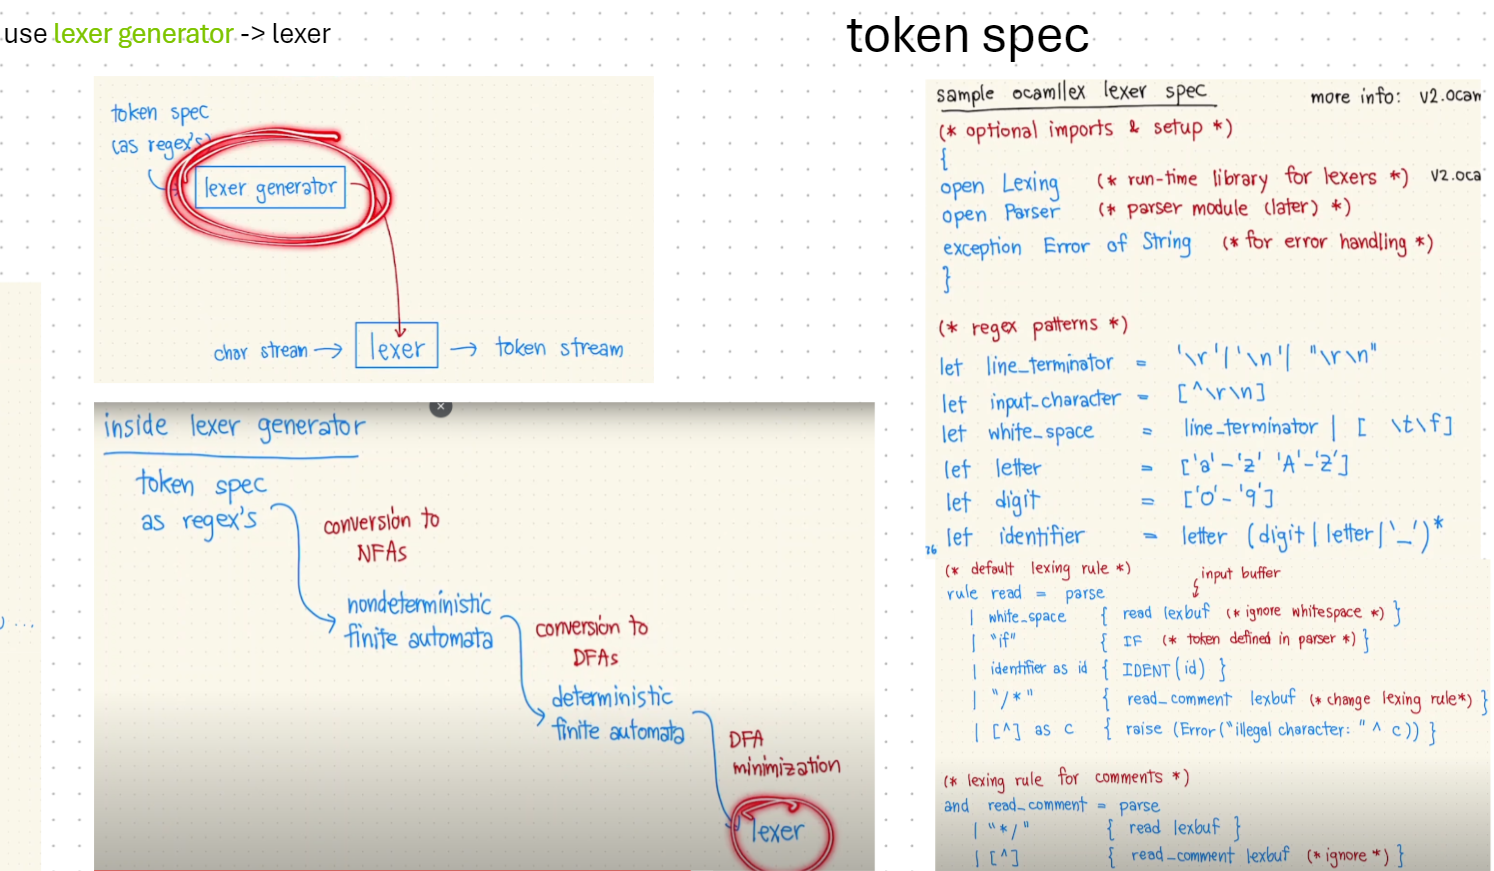 use lexer generator -> lexer
token spec
(as regex's)
lexer generator
char stream → lexer → token stream
inside lexer generator
token spec
as regex's
conversion to
NFAs
nondeterministic
finite automata
conversion to
DFAs
deterministic
finite automata
DFA
minimization
lexer
token spec
sample ocamllex lexer spec
more info: v2.ocam
(* optional imports & setup *)
{
open Lexing (* run-time library for lexers *) v2.oca
open Parser (* parser module (later) *)
exception Error of String (* for error handling *)
}
(* regex patterns *)
let line_terminator = '\r'|'\n'| "\r\n"
let input_character = [^\r\n]
let white_space = line_terminator | [ \t\f]
let letter = ['a'-'z' 'A'-'Z']
let digit = ['0'-'9']
let identifier = letter (digit | letter | '_')*
(* default lexing rule *)
input buffer
rule read = parse
| white_space { read lexbuf (* ignore whitespace *) }
| "if" { IF (* token defined in parser *) }
| identifier as id { IDENT(id) }
| "/*" { read_comment lexbuf (* change lexing rule*) }
| [^] as c { raise (Error("illegal character: " ^ c)) }
(* lexing rule for comments *)
and read_comment = parse
| "*/" { read lexbuf }
| [^] { read_comment lexbuf (* ignore *) }